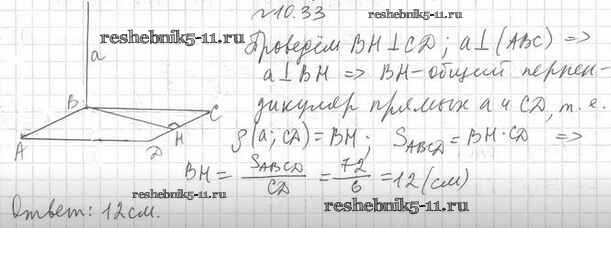 №10.33
reshebnik5-11.ru
a
reshebnik5-11.ru
Проведём BH⊥CD; a⊥(ABC) =>
a⊥BH => BH-общий перпен-
дикуляр прямых a и CD, т.е.
B
C
H
A
D
ρ(a; CD)=BH; S_ABCD=BH·CD =>
BH = S_ABCD/CD = 72/6 = 12 (см)
reshebnik5-11.ru
reshebnik5-11.ru
Ответ: 12см.